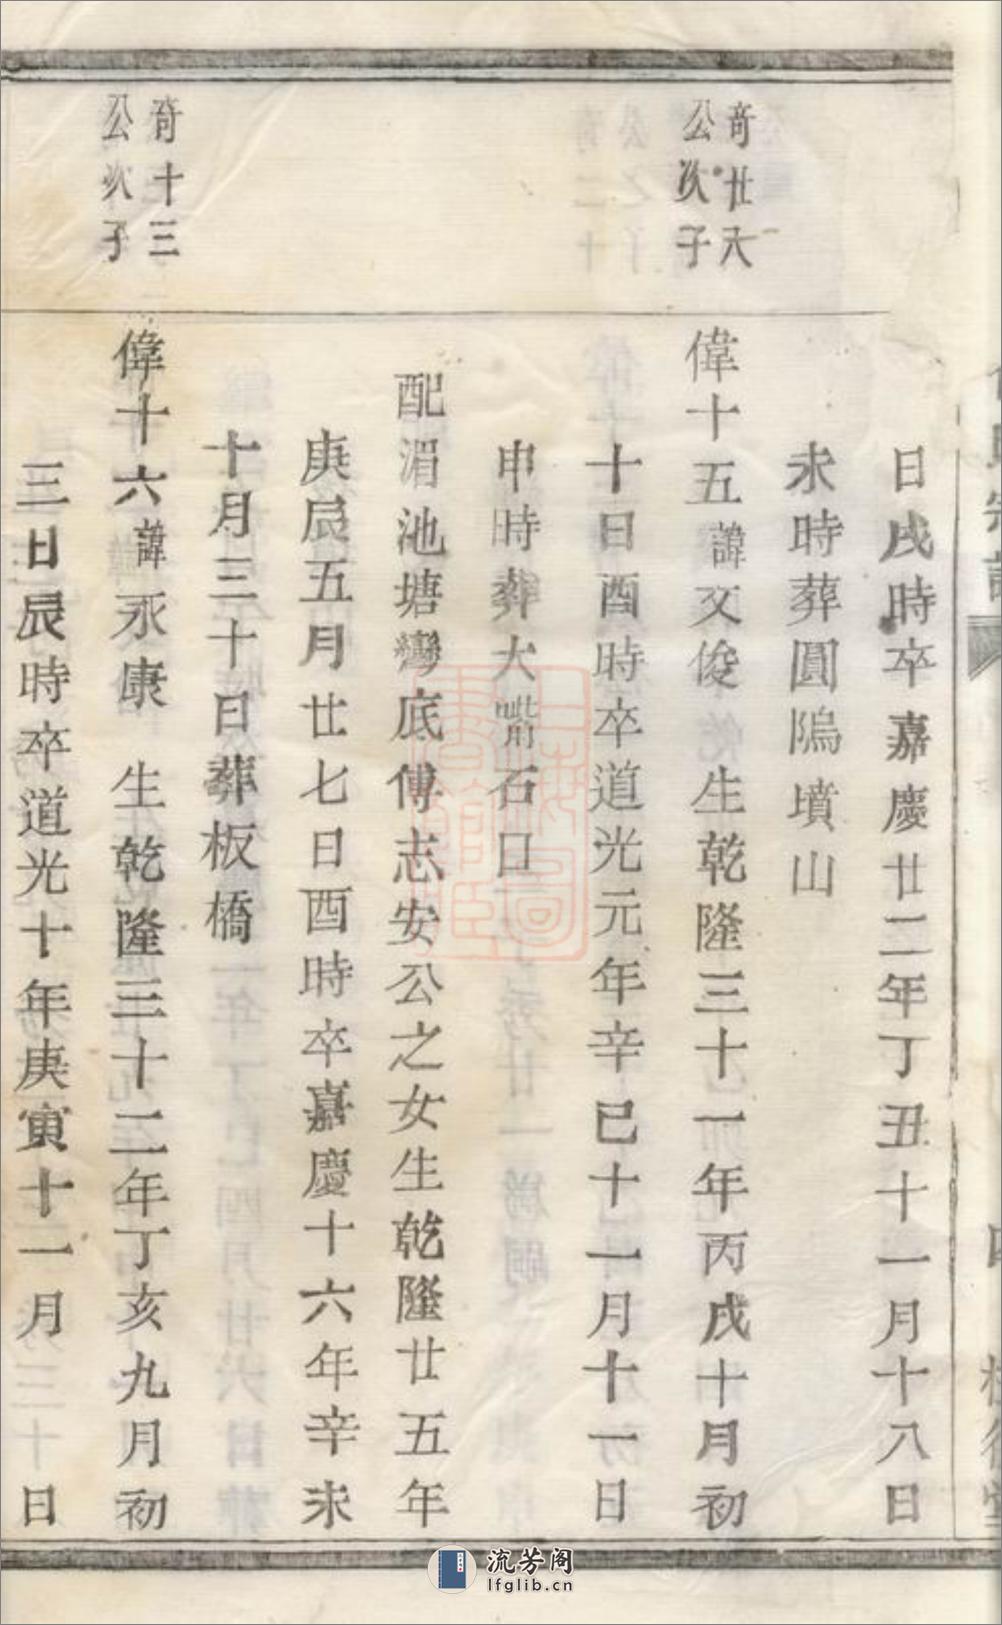 日戌時卒嘉慶廿二年丁丑十一月十八日
未時葬圓隖墳山
奇廿六
公次子
偉十五諱文俊 生乾隆三十一年丙戌十月初
十日酉時卒道光元年辛巳十一月十一日
申時葬大嘴石口
配湄池塘灣底傅志安公之女生乾隆廿五年
庚辰五月廿七日酉時卒嘉慶十六年辛未
十月三十日葬板橋
奇十三
公次子
偉十六諱永康 生乾隆三十二年丁亥九月初
三日辰時卒道光十年庚寅十一月 日
流芳阁
lfglib.cn